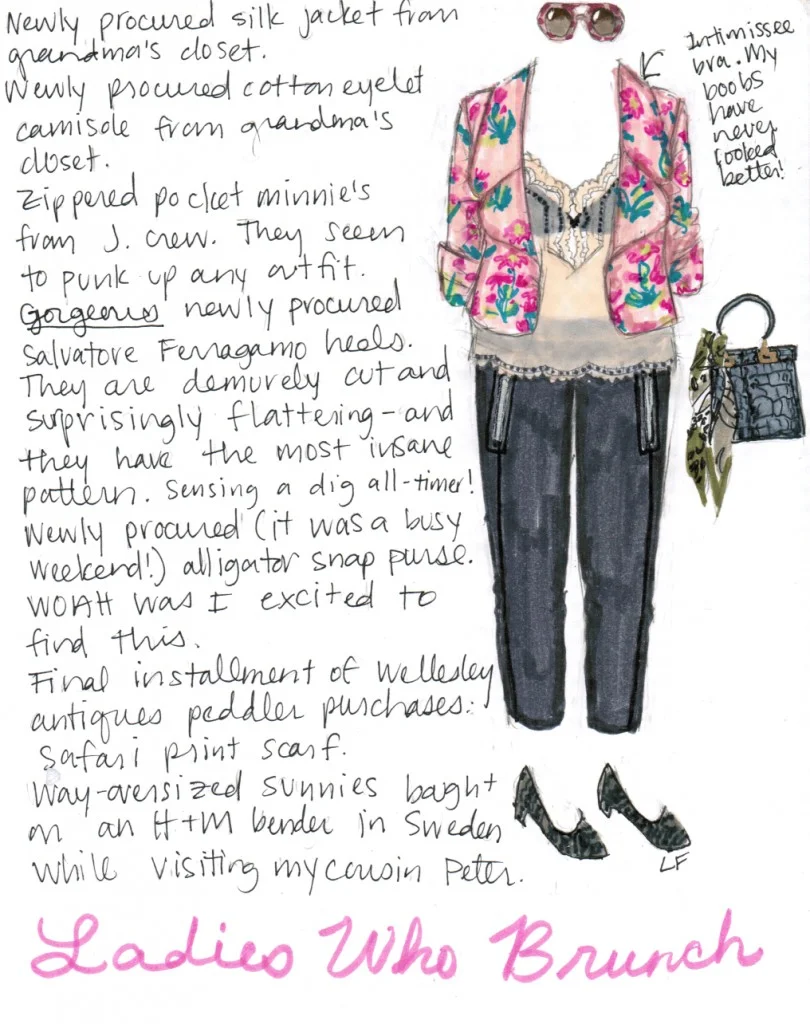 Newly procured silk jacket from
grandma's closet.
Newly procured cotton eyelet
camisole from grandma's
closet.
Zippered pocket minnie's
from J. Crew. They seem
to punk up any outfit.
Gorgeous newly procured
Salvatore Ferragamo heels.
They are demurely cut and
surprisingly flattering - and
they have the most insane
pattern. Sensing a dig all-timer!
Newly procured (it was a busy
weekend!) alligator snap purse.
WOAH was I excited to
find this.
Final installment of Wellesley
antiques peddler purchases:
safari print scarf.
Way-oversized sunnies bought
on an H+M bender in Sweden
while visiting my cousin Peter.
Intimissee
bra. My
boobs
have
never
looked
better!
LF
Ladies Who Brunch